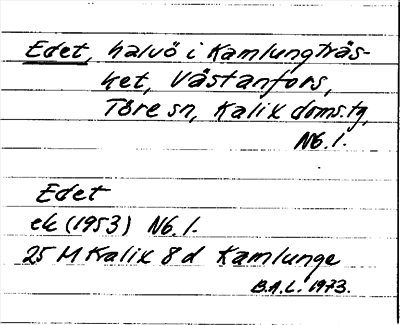 Edet, halvö i Kamlungträs-
ket, Västanfors,
Töre sn, Kalix doms.tg,
Nb. l.
Edet
ek (1953) Nb. l.
25 M Kalix 8 d Kamlunge
B.A.L. 1973.